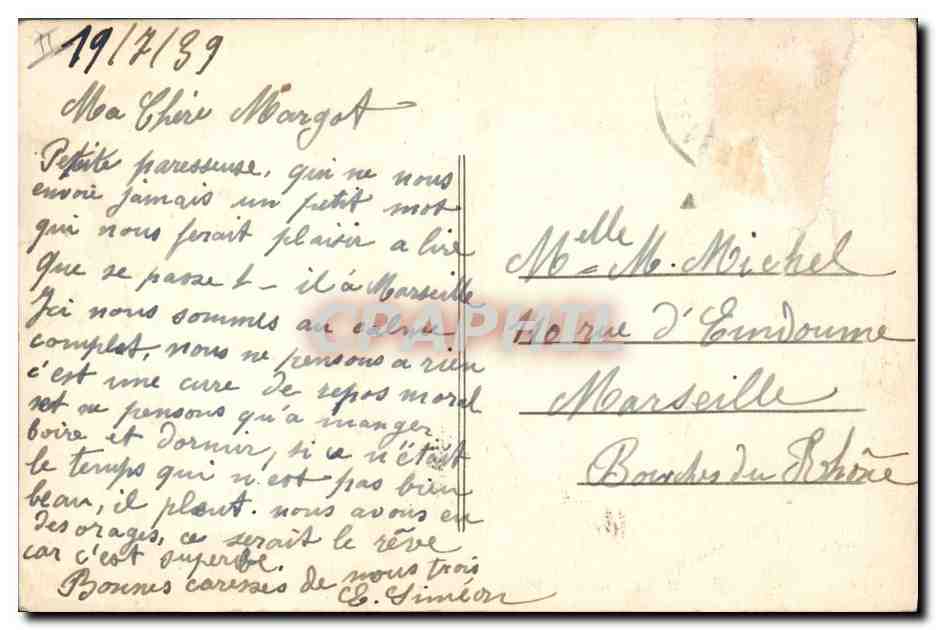 19/7/39
Ma Chère Margot
Petite paresseuse, qui ne nous
envoie jamais un petit mot
qui nous ferait plaisir a lire
Que se passe t-il à Marseille
Ici nous sommes au calme
complet, nous ne pensons a rien
c'est une cure de repos moral
et ne pensons qu'à manger
boire et dormir, si ce n'était
le temps qui n'est pas bien
beau, il pleut. nous avons eu
des orages, ce serait le rêve
car c'est superbe.
Bonnes caresses de nous trois
E. Siméon
Melle M. Michel
110 rue d'Endoume
Marseille
Bouches du Rhône
CPAPHIL